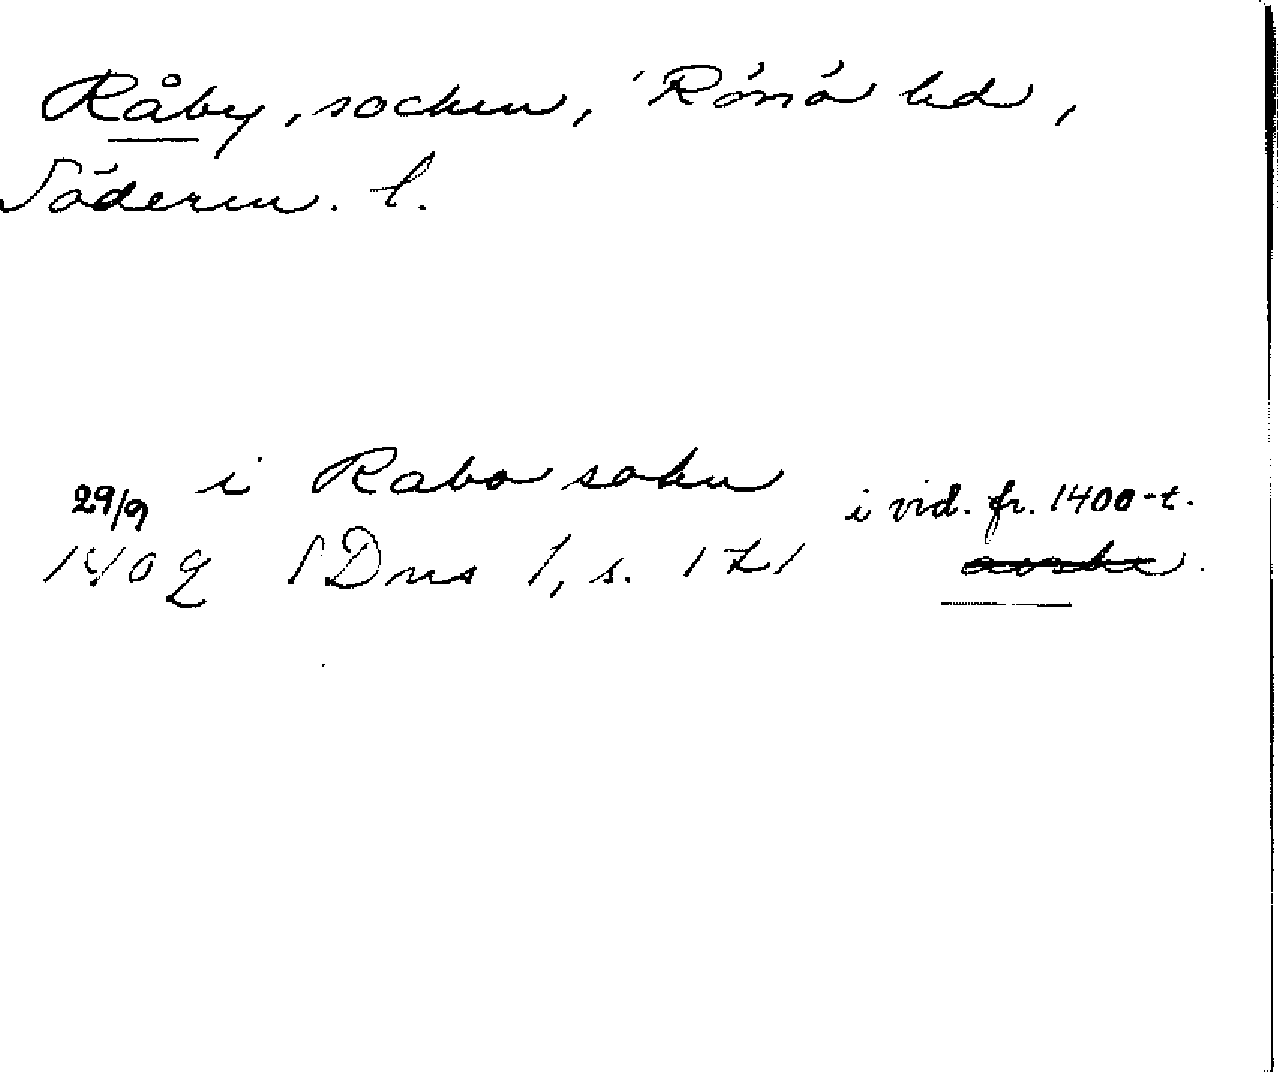 Råby, socken, Rönö hd,
Söderm. l.
i Rabo sokn
29/9 i vid. fr. 1400-t.
1402 SDns 1, s. 121